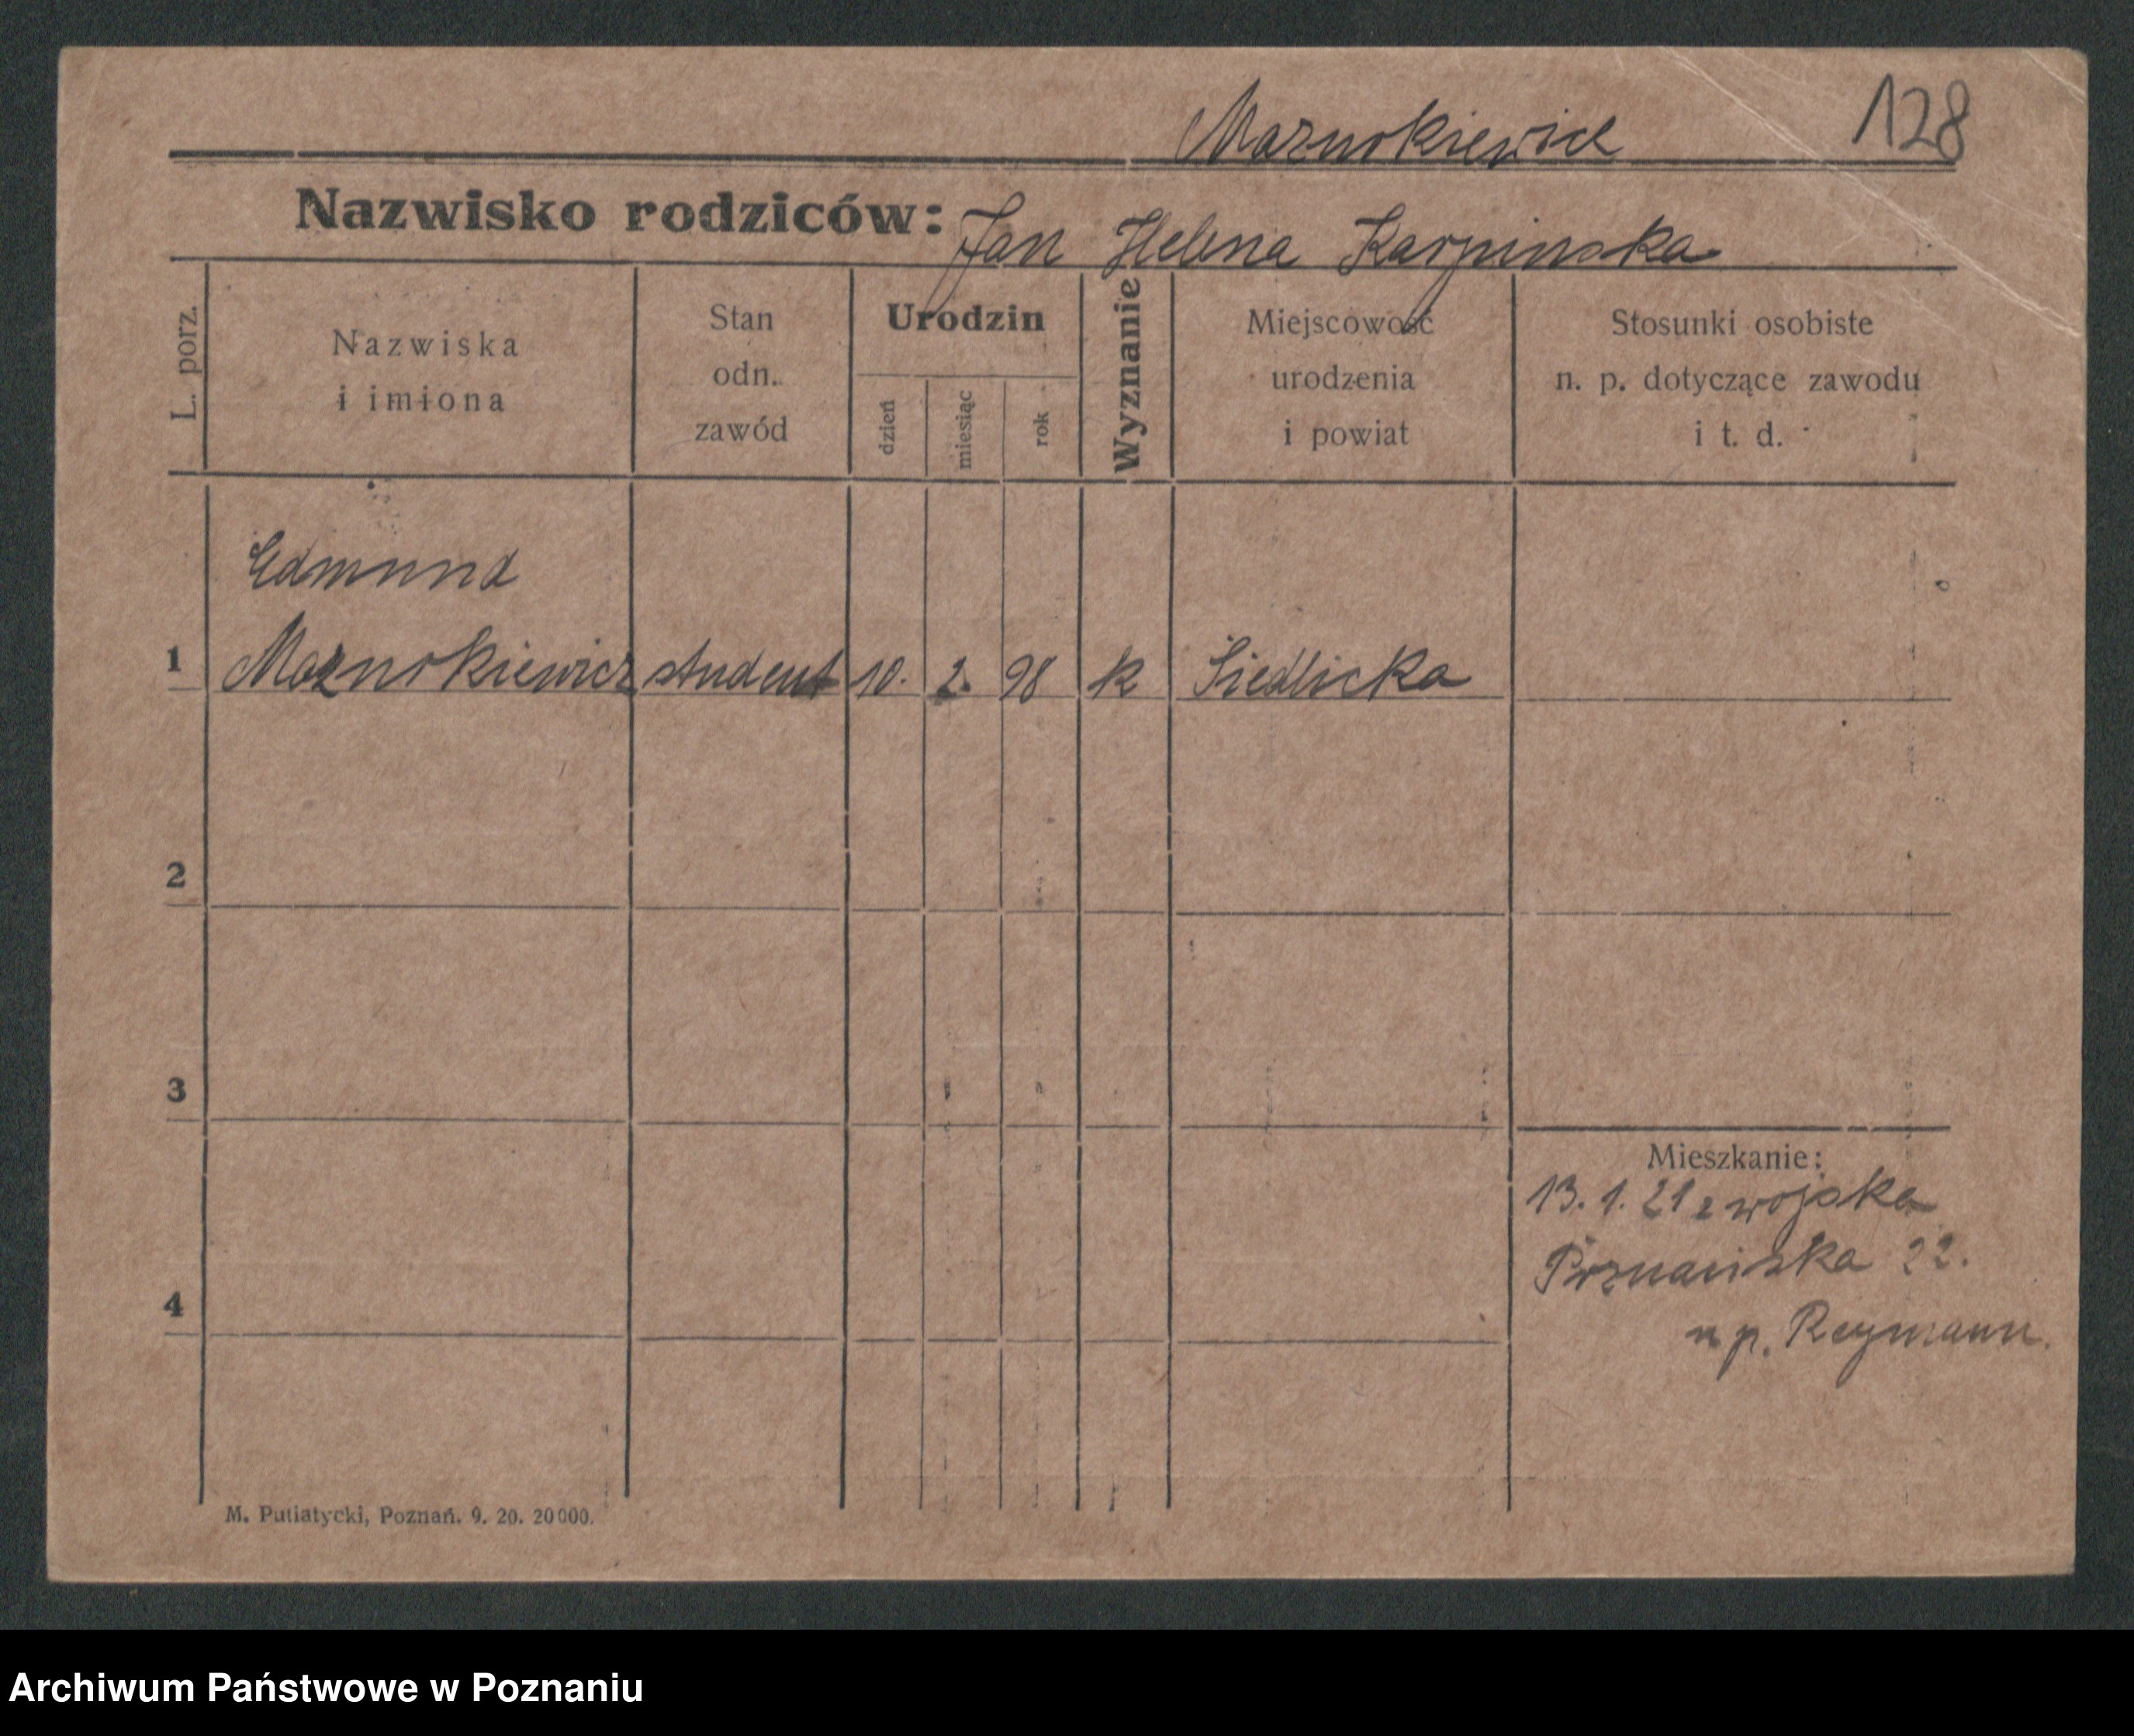 Maznokiewicz 128
Nazwisko rodziców: Jan Helena Karpinska
L. porz.
Nazwiska
i imiona
Stan
odn.
zawód
Urodzin
dzień
miesiąc
rok
Wyznanie
Miejscowość
urodzenia
i powiat
Stosunki osobiste
n. p. dotyczące zawodu
i t. d.
Edmund
1 Maznokiewicz student 10. 2. 98 k Siedlicka
2
3
4
Mieszkanie:
13. 1. 21 z wojska
Poznańska 22.
n p. Reymann.
M. Putiatycki, Poznań. 9. 20. 20000.
Archiwum Państwowe w Poznaniu